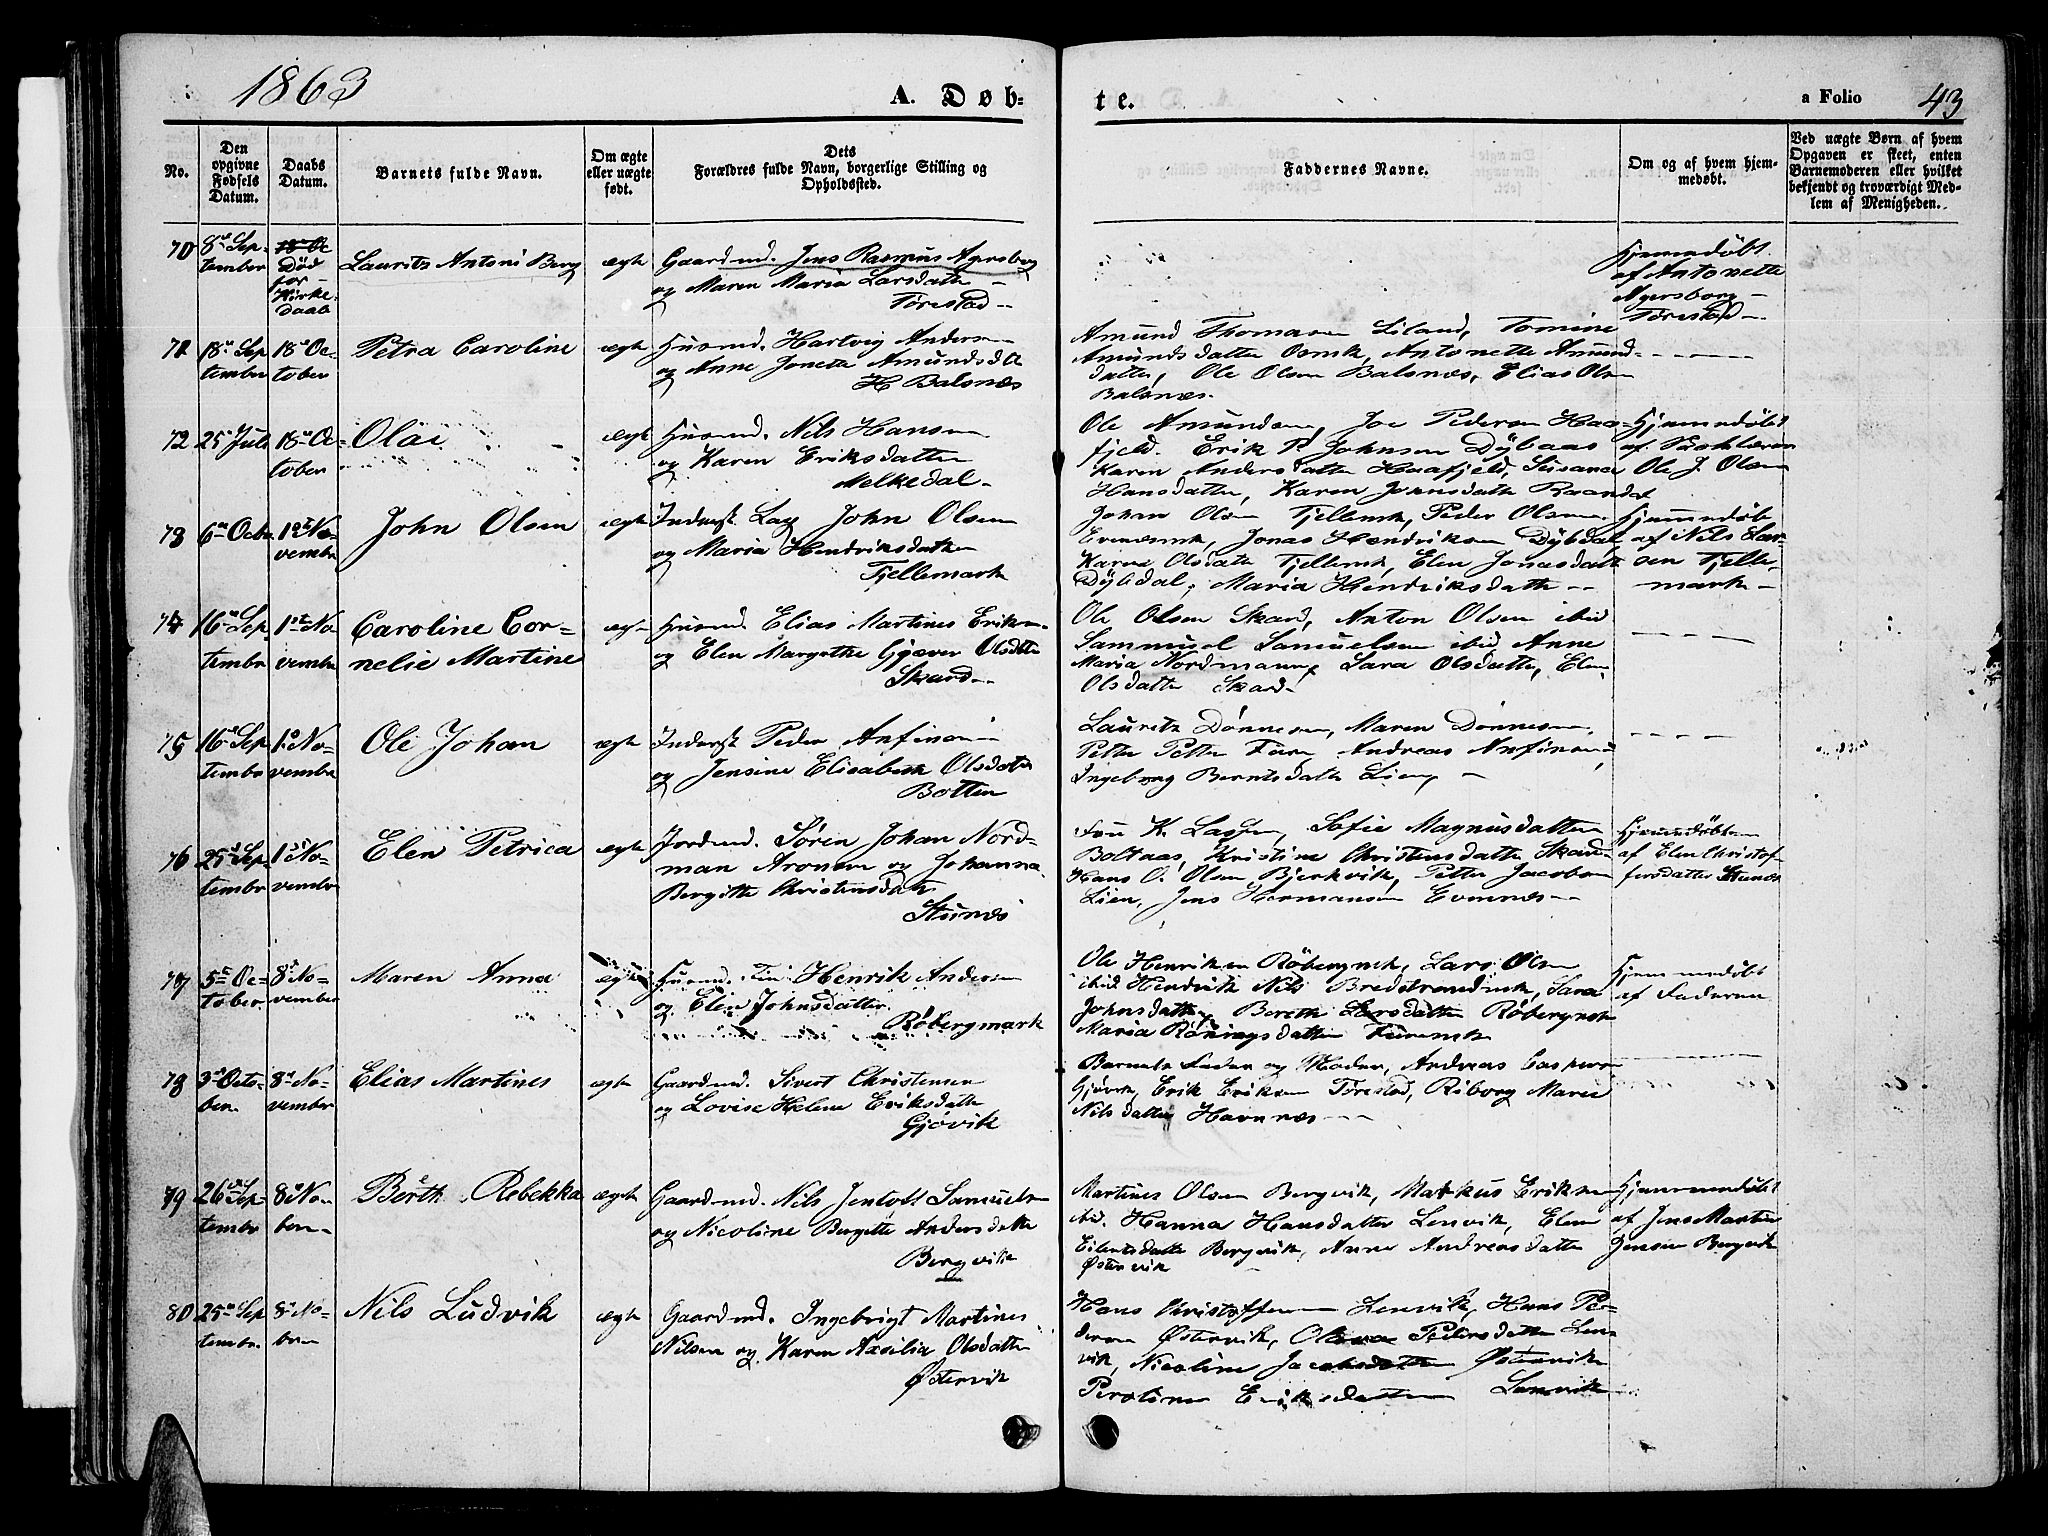 1863
A. Døb-
te.
a Folio 43
No.
Den opgivne Fødsels Datum.
Daabs Datum.
Barnets fulde Navn.
Om ægte eller uægte født.
Dets Forældres fulde Navn, borgerlige Stilling og Opholdssted.
Faddernes Navne.
Om og af hvem hjemmedøbt.
Ved uægte Børn af hvem Opgaven er skeet, enten Barnemoderen eller hvilket bekjendt og troværdigt Medlem af Menigheden.
70
8de September
Død før Kirkedaab
Laurits Antoni Berg
ægte
Gaardmd. Jens Rasmus Agersborg
og Maren Maria Larsdatter
Tørestad
Hjemmedøbt
af Antonette
Agersborg
Tørestad
71
18de September
18de October
Petra Caroline
ægte
Husmd. Hartvig Andersen
og Anne Jonette Amundsdtr
H Balsnæs
Amund Thomasen Liland, Tomine
Amundsdatter Osmk, Antonette Amunds-
datter, Ole Olsen Balsnæs, Elias Olsen
Balsnæs.
72
25 Juli
18de October
Olai
ægte
Husmd. Nils Hansen
og Karen Eriksdatter
Melkedal
Ole Amundsen, Joe Pedersen Haa-
fjeld. Erik P. Johnsen Dybaas
Karen Andersdatter Haafjeld, Susana
Hansdatter, Karen Johnsdatter Raandal
Hjemmedøbt
af Skolelæreren
Ole J. Olsen
73
6te Octbr.
1ste November
John Olsen
ægte
Inderst. Lap John Olsen
og Maria Hendriksdatter
Tjellemark
Johan Olsen Tjellemk, Peder Olsen
Evenæsmk, Jonas Hendriksen Dybdal
Karen Olsdatter Tjellemk, Elen Jonasdatter
Dybdal, Maria Hendriksdatter
Hjemmedøbt
af Nils Lar-
sen Tjelle-
mark
74
16de September
1ste November
Caroline Cor-
nelie Martine
ægte
Husmd. Elias Martines Eriksen
og Elen Margrethe Gjæver Olsdtr
Skard
Ole Olsen Skard, Anton Olsen ibid
Sammuel Samuelsen ibid Anne
Maria Nordmann, Sara Olsdatter, Elen
Olsdatter Skard
75
16de September
1ste November
Ole Johan
ægte
Inderst Peder Anfinsen
og Jensine Elisabeth Olsdatter
Botten
Lauritz Dønnesen, Maren Dønnesen,
Petter Petter Furu, Andreas Anfinsen,
Ingeborg Berntsdatter Lien,
76
25de September
1ste November
Elen Petrica
ægte
Jordmd. Søren Johan Nord-
man Aronsen og Johanna
Bergitte Christensdatr
Stunæs
Fru K. Lassen, Sofie Magnusdatter
Boltaas, Kristine Christensdatter Skard
Hans O. Olsen Bjerkvik, Petter Jacobsen
Lien, Jens Hermansen Evenæs
Hjemmedøbt
af Elen Christof-
fersdatter Stunæs
77
5te October
8de November
Maren Anna
ægte
Husmd. Fin Henrik Andersen
og Elen Johnsdatter
Røbergmark
Ole Henriksen Røbergmk, Lars Olsen
ibid Hendrik Nils Bredstrandmk, Sara
Johnsdatter, Bereth Larsdatter Røbergmk
Maria Henningsdatter
Hjemmedøbt
af Faderen
78
3die October
8de November
Elias Martines
ægte
Gaardmd. Sivert Christensen
og Lovise Helene Eriksdatter
Gjøvik
Barnets Fader og Moder, Andreas Caspersen
Gjøvik, Erik Eriksen Tørestad, Riborg Marie
Nilsdatter Havnnæs
79
26de September
8de Novbern
Berith Rebekka
ægte
Gaardmd. Nils Jentoft Samuelsen
og Nicoline Bergitte Andersdatter
Bergvik
Martines Olsen Bergvik, Markus Eriksen
ibid. Hanna Hansdatter Lenvik, Elen
Eilertsdatter Bergvik, Anne Andreasdatter
Østervik
Hjemmedøbt
af Jens Martin
Jensen Bergvik
80
25de September
8de Nobern
Nils Ludvik
ægte
Gaardmd. Ingebrigt Martines
Nilsen og Karen Axsilia Olsdatter
Østervik
Hans Christoffersen Lenvik, Hans Pe-
dersen Østervik, Olava Pedersdatter Len-
vik, Nicoline Jacobsdatter Østervik
Peroline Eriksdatter Lenvik